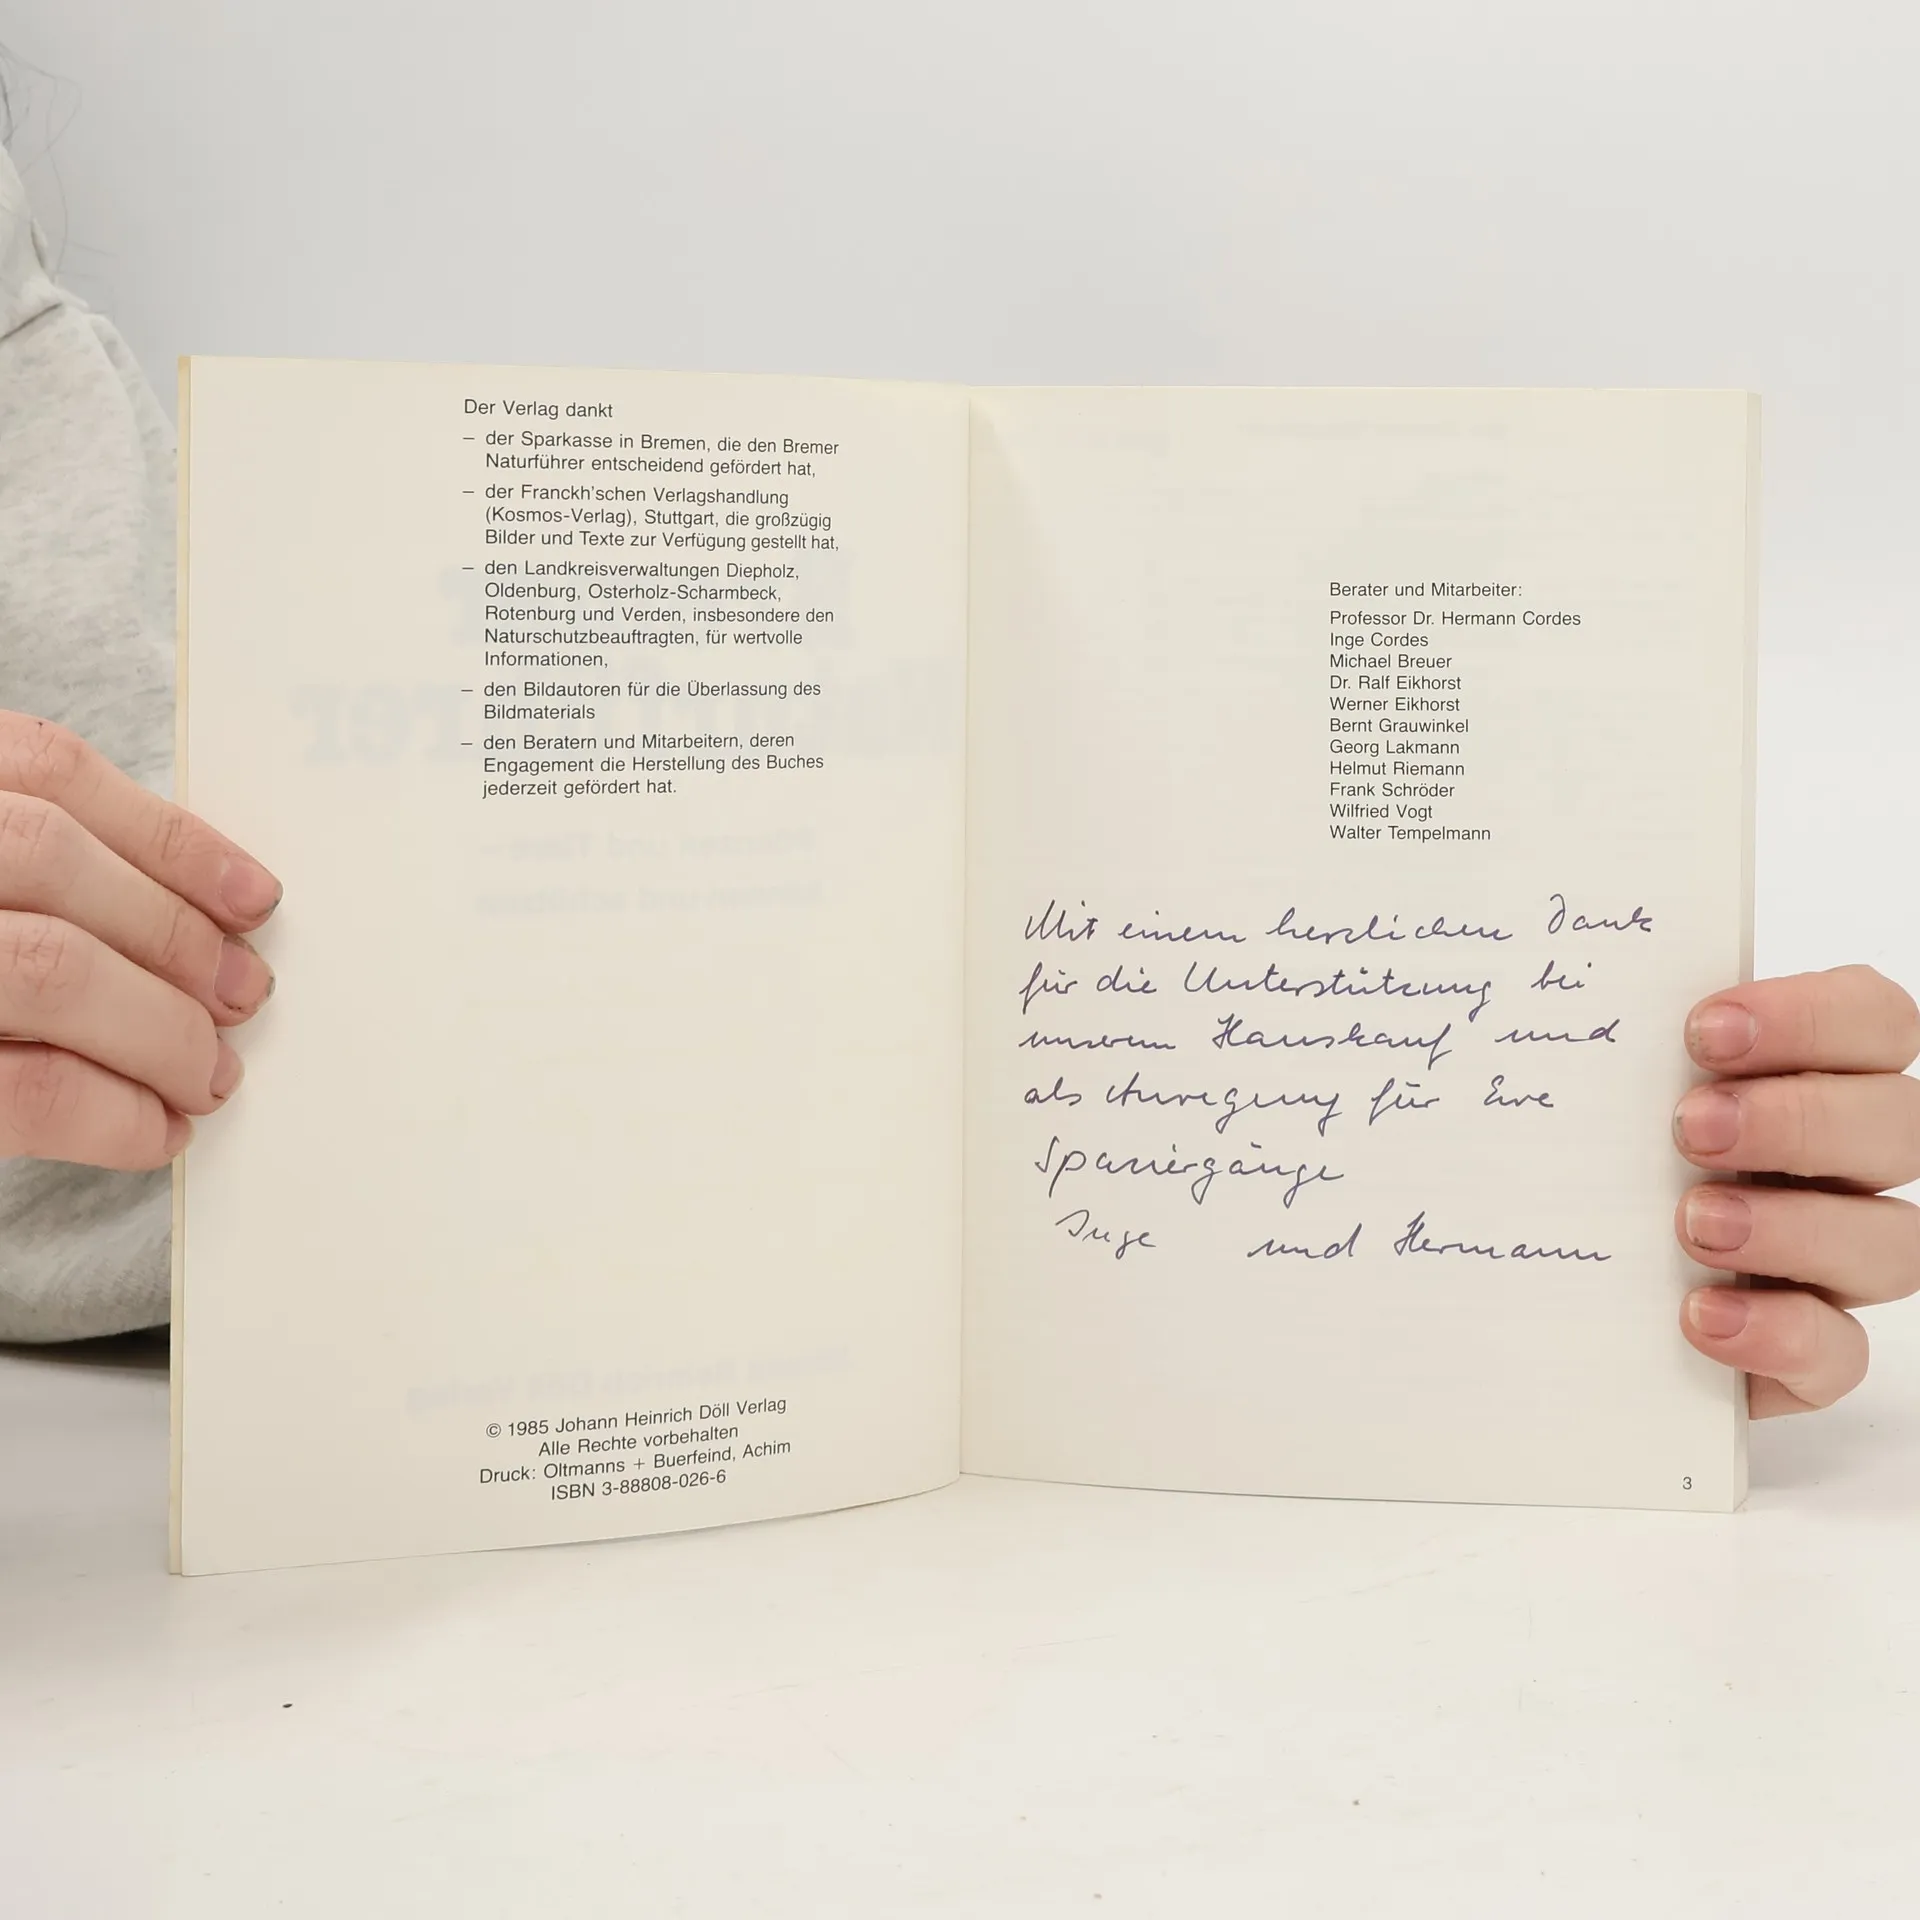 Der Verlag dankt
– der Sparkasse in Bremen, die den Bremer
Naturführer entscheidend gefördert hat,
– der Franckh'schen Verlagshandlung
(Kosmos-Verlag), Stuttgart, die großzügig
Bilder und Texte zur Verfügung gestellt hat,
– den Landkreisverwaltungen Diepholz,
Oldenburg, Osterholz-Scharmbeck,
Rotenburg und Verden, insbesondere den
Naturschutzbeauftragten, für wertvolle
Informationen,
– den Bildautoren für die Überlassung des
Bildmaterials
– den Beratern und Mitarbeitern, deren
Engagement die Herstellung des Buches
jederzeit gefördert hat.
© 1985 Johann Heinrich Döll Verlag
Alle Rechte vorbehalten
Druck: Oltmanns + Buerfeind, Achim
ISBN 3-88808-026-6
Berater und Mitarbeiter:
Professor Dr. Hermann Cordes
Inge Cordes
Michael Breuer
Dr. Ralf Eikhorst
Werner Eikhorst
Bernt Grauwinkel
Georg Lakmann
Helmut Riemann
Frank Schröder
Wilfried Vogt
Walter Tempelmann
Mit einem herzlichen Dank
für die Unterstützung bei
unserem Hauskauf und
als Anregung für Eure
Spaziergänge
Inge und Hermann
3